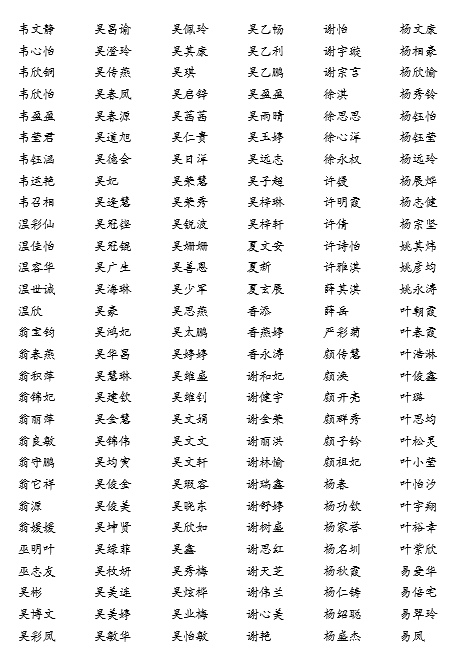 韦文静 吴昌谕 吴佩玲 吴乙畅 谢怡 杨文康
韦心怡 吴澄玲 吴其康 吴乙利 谢宇璇 杨相豪
韦欣钢 吴传燕 吴琪 吴乙鹏 谢宗言 杨欣愉
韦欣怡 吴春凤 吴启铧 吴盈盈 徐淇 杨秀铃
韦盈盈 吴春源 吴茜茜 吴雨晴 徐思思 杨钰怡
韦莹君 吴道旭 吴仁贵 吴玉婷 徐心洋 杨钰莹
韦钰涵 吴德会 吴日洋 吴远志 徐永权 杨远玲
韦运艳 吴妃 吴荣慧 吴子超 许嫒 杨展烨
韦召相 吴逢慧 吴荣秀 吴梓琳 许明霞 杨志健
温彩仙 吴冠铿 吴锐波 吴梓轩 许倩 杨宗坚
温佳怡 吴冠锟 吴姗姗 夏文安 许诗怡 姚其炜
温容华 吴广生 吴善恩 夏新 许雅淇 姚彦均
温世诚 吴海琳 吴少军 夏玄展 薛其淇 姚永涛
温欣 吴豪 吴思燕 香添 薛岳 叶朝霞
翁宝钧 吴鸿妃 吴太鹏 香燕婷 严彩菊 叶春霞
翁春燕 吴华昌 吴婷婷 香永涛 颜传慧 叶浩淋
翁积萍 吴慧琳 吴维盛 谢和妃 颜涣 叶俊鑫
翁锦妃 吴建钦 吴维钊 谢健宇 颜开亮 叶璐
翁丽萍 吴金慧 吴文娟 谢金荣 颜群秀 叶思均
翁良敏 吴锦伟 吴文文 谢丽洪 颜子铃 叶松灵
翁守鹏 吴均寅 吴文轩 谢林愉 颜祖妃 叶小莹
翁它祥 吴俊金 吴瑕容 谢瑞鑫 杨春 叶怡汐
翁源 吴俊美 吴晓东 谢舒婷 杨功钦 叶宇翔
翁媛媛 吴坤贤 吴欣如 谢树盛 杨家誉 叶裕幸
巫明叶 吴绿菲 吴鑫 谢思红 杨名圳 叶紫欣
巫志友 吴枚妍 吴秀梅 谢天芝 杨秋霞 易爱华
吴彬 吴美连 吴炫桦 谢伟兰 杨仁铸 易倍宅
吴博文 吴美婷 吴业梅 谢心美 杨绍聪 易翠玲
吴彩凤 吴敏华 吴怡敏 谢艳 杨盛杰 易凤